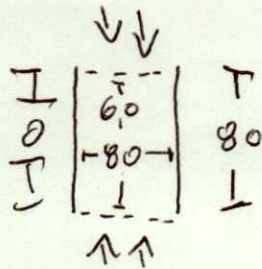 60
0
80
80